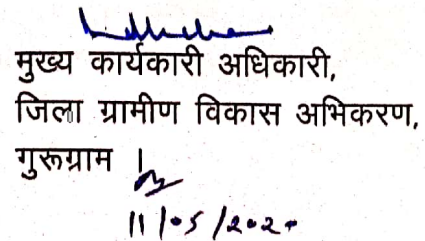 मुख्य कार्यकारी अधिकारी,
जिला ग्रामीण विकास अभिकरण,
गुरूग्राम ।
11/05/2020